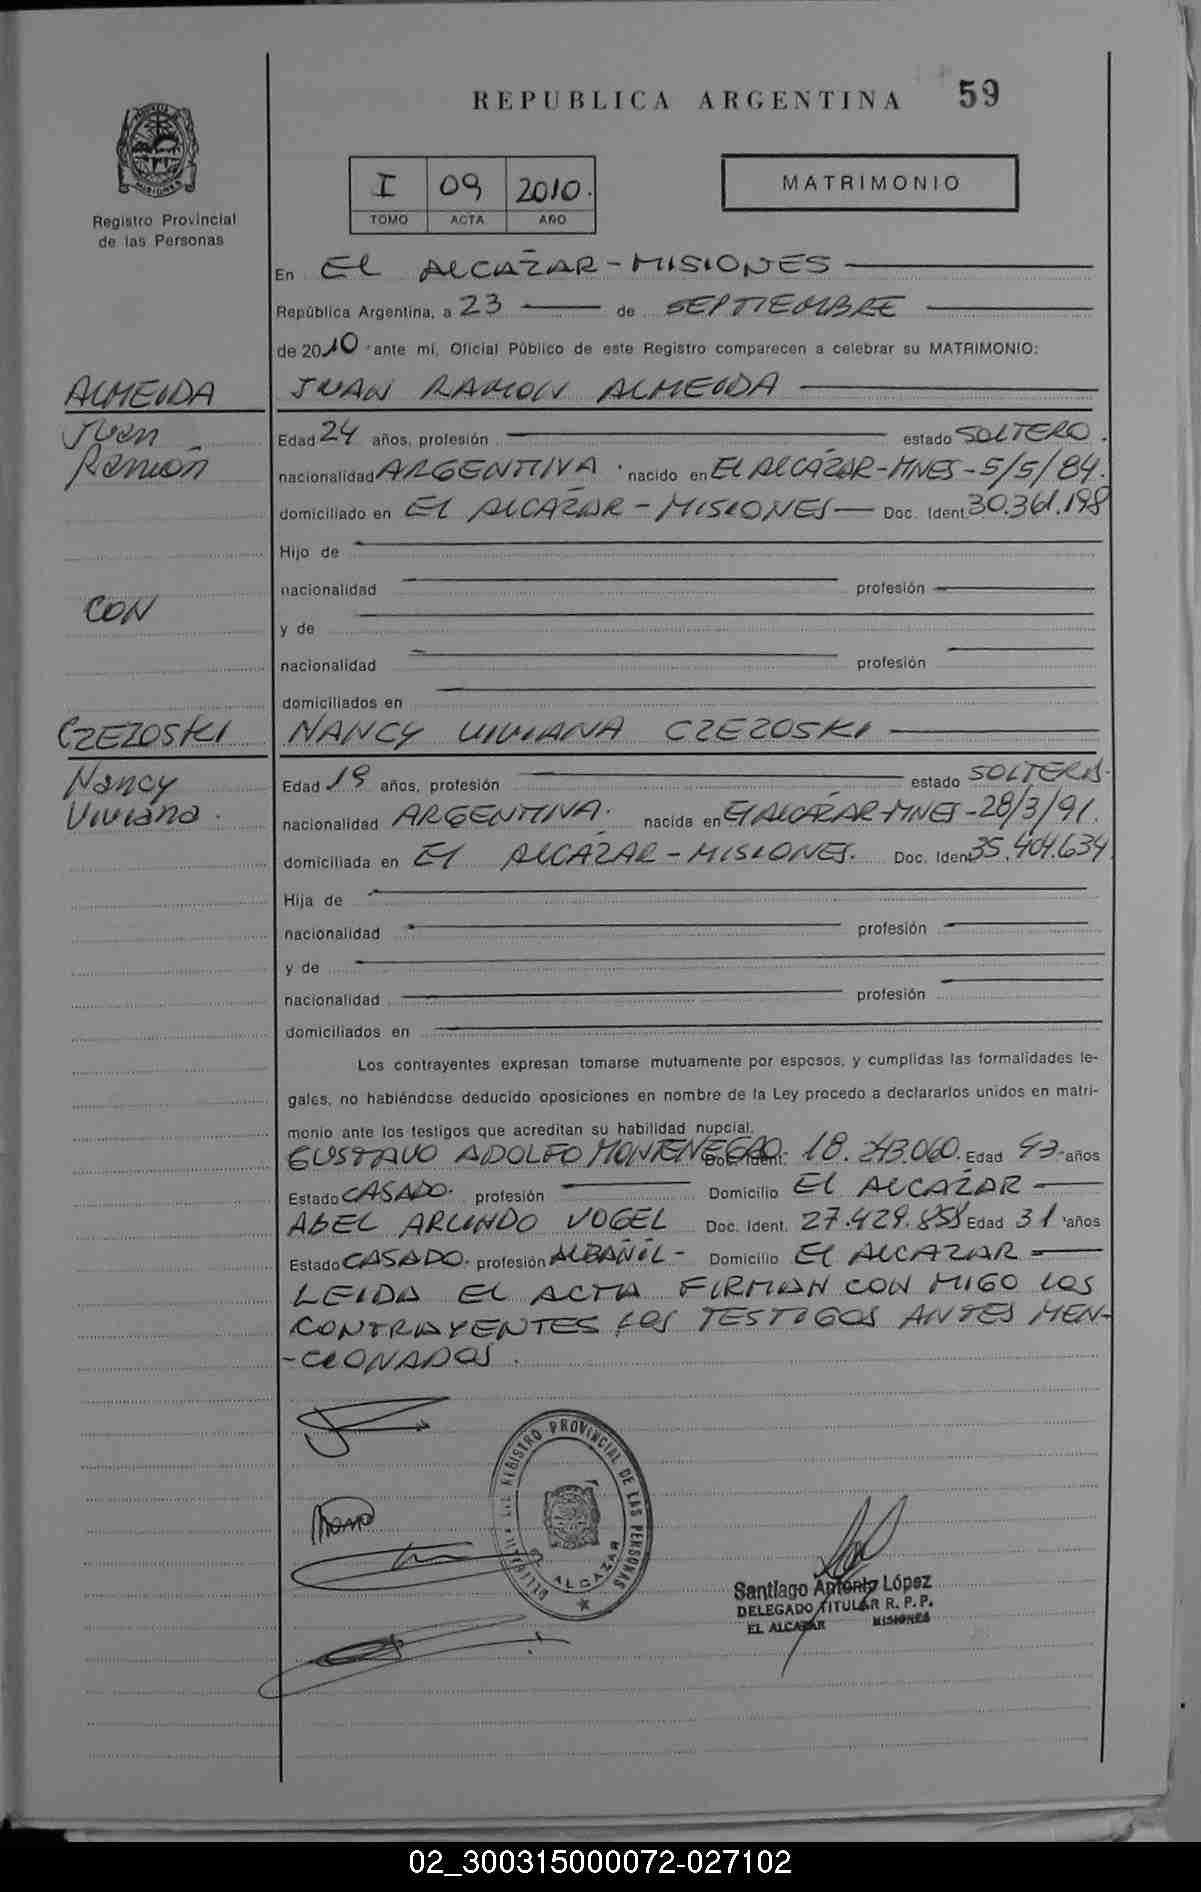 REPUBLICA ARGENTINA 59
I 09 2010.
TOMO ACTA AÑO
MATRIMONIO
Registro Provincial
de las Personas
En EL ALCAZAR - MISIONES
República Argentina, a 23 de SEPTIEMBRE
de 2010 ante mí, Oficial Público de este Registro comparecen a celebrar su MATRIMONIO:
ALMEIDA
Juan
Ramón
CON
CZEZOSKI
Nancy
Viviana.
JUAN RAMON ALMEIDA
Edad 24 años, profesión estado SOLTERO.
nacionalidad ARGENTINA. nacido en El ALCAZAR-MNES-5/5/84.
domiciliado en EL ALCAZAR - MISIONES Doc. Ident. 30.361.198
Hijo de
nacionalidad profesión
y de
nacionalidad profesión
domiciliados en
NANCY VIVIANA CZEZOSKI
Edad 19 años, profesión estado SOLTERA.
nacionalidad ARGENTINA. nacida en El ALCAZAR-MNES-28/3/91.
domiciliada en El ALCAZAR - MISIONES. Doc. Ident 35.404.634
Hija de
nacionalidad profesión
y de
nacionalidad profesión
domiciliados en
Los contrayentes expresan tomarse mutuamente por esposos, y cumplidas las formalidades le-
gales, no habiéndose deducido oposiciones en nombre de la Ley procedo a declararlos unidos en matri-
monio ante los testigos que acreditan su habilidad nupcial.
GUSTAVO ADOLFO MONTENEGRO Doc. Ident. 18.243.060. Edad 43 años
Estado CASADO. profesión Domicilio El ALCAZAR
ABEL ARLINDO VOGEL Doc. Ident. 27.429.858 Edad 31 años
Estado CASADO. profesión ALBAÑIL - Domicilio El ALCAZAR
LEIDA EL ACTA FIRMAN CON MIGO LOS
CONTRAYENTES LOS TESTIGOS ANTES MEN-
-CIONADOS.
REGISTRO PROVINCIAL DE LAS PERSONAS
ALCAZAR
Santiago Antonio López
DELEGADO TITULAR R. P. P.
EL ALCAZAR MISIONES
02_300315000072-027102